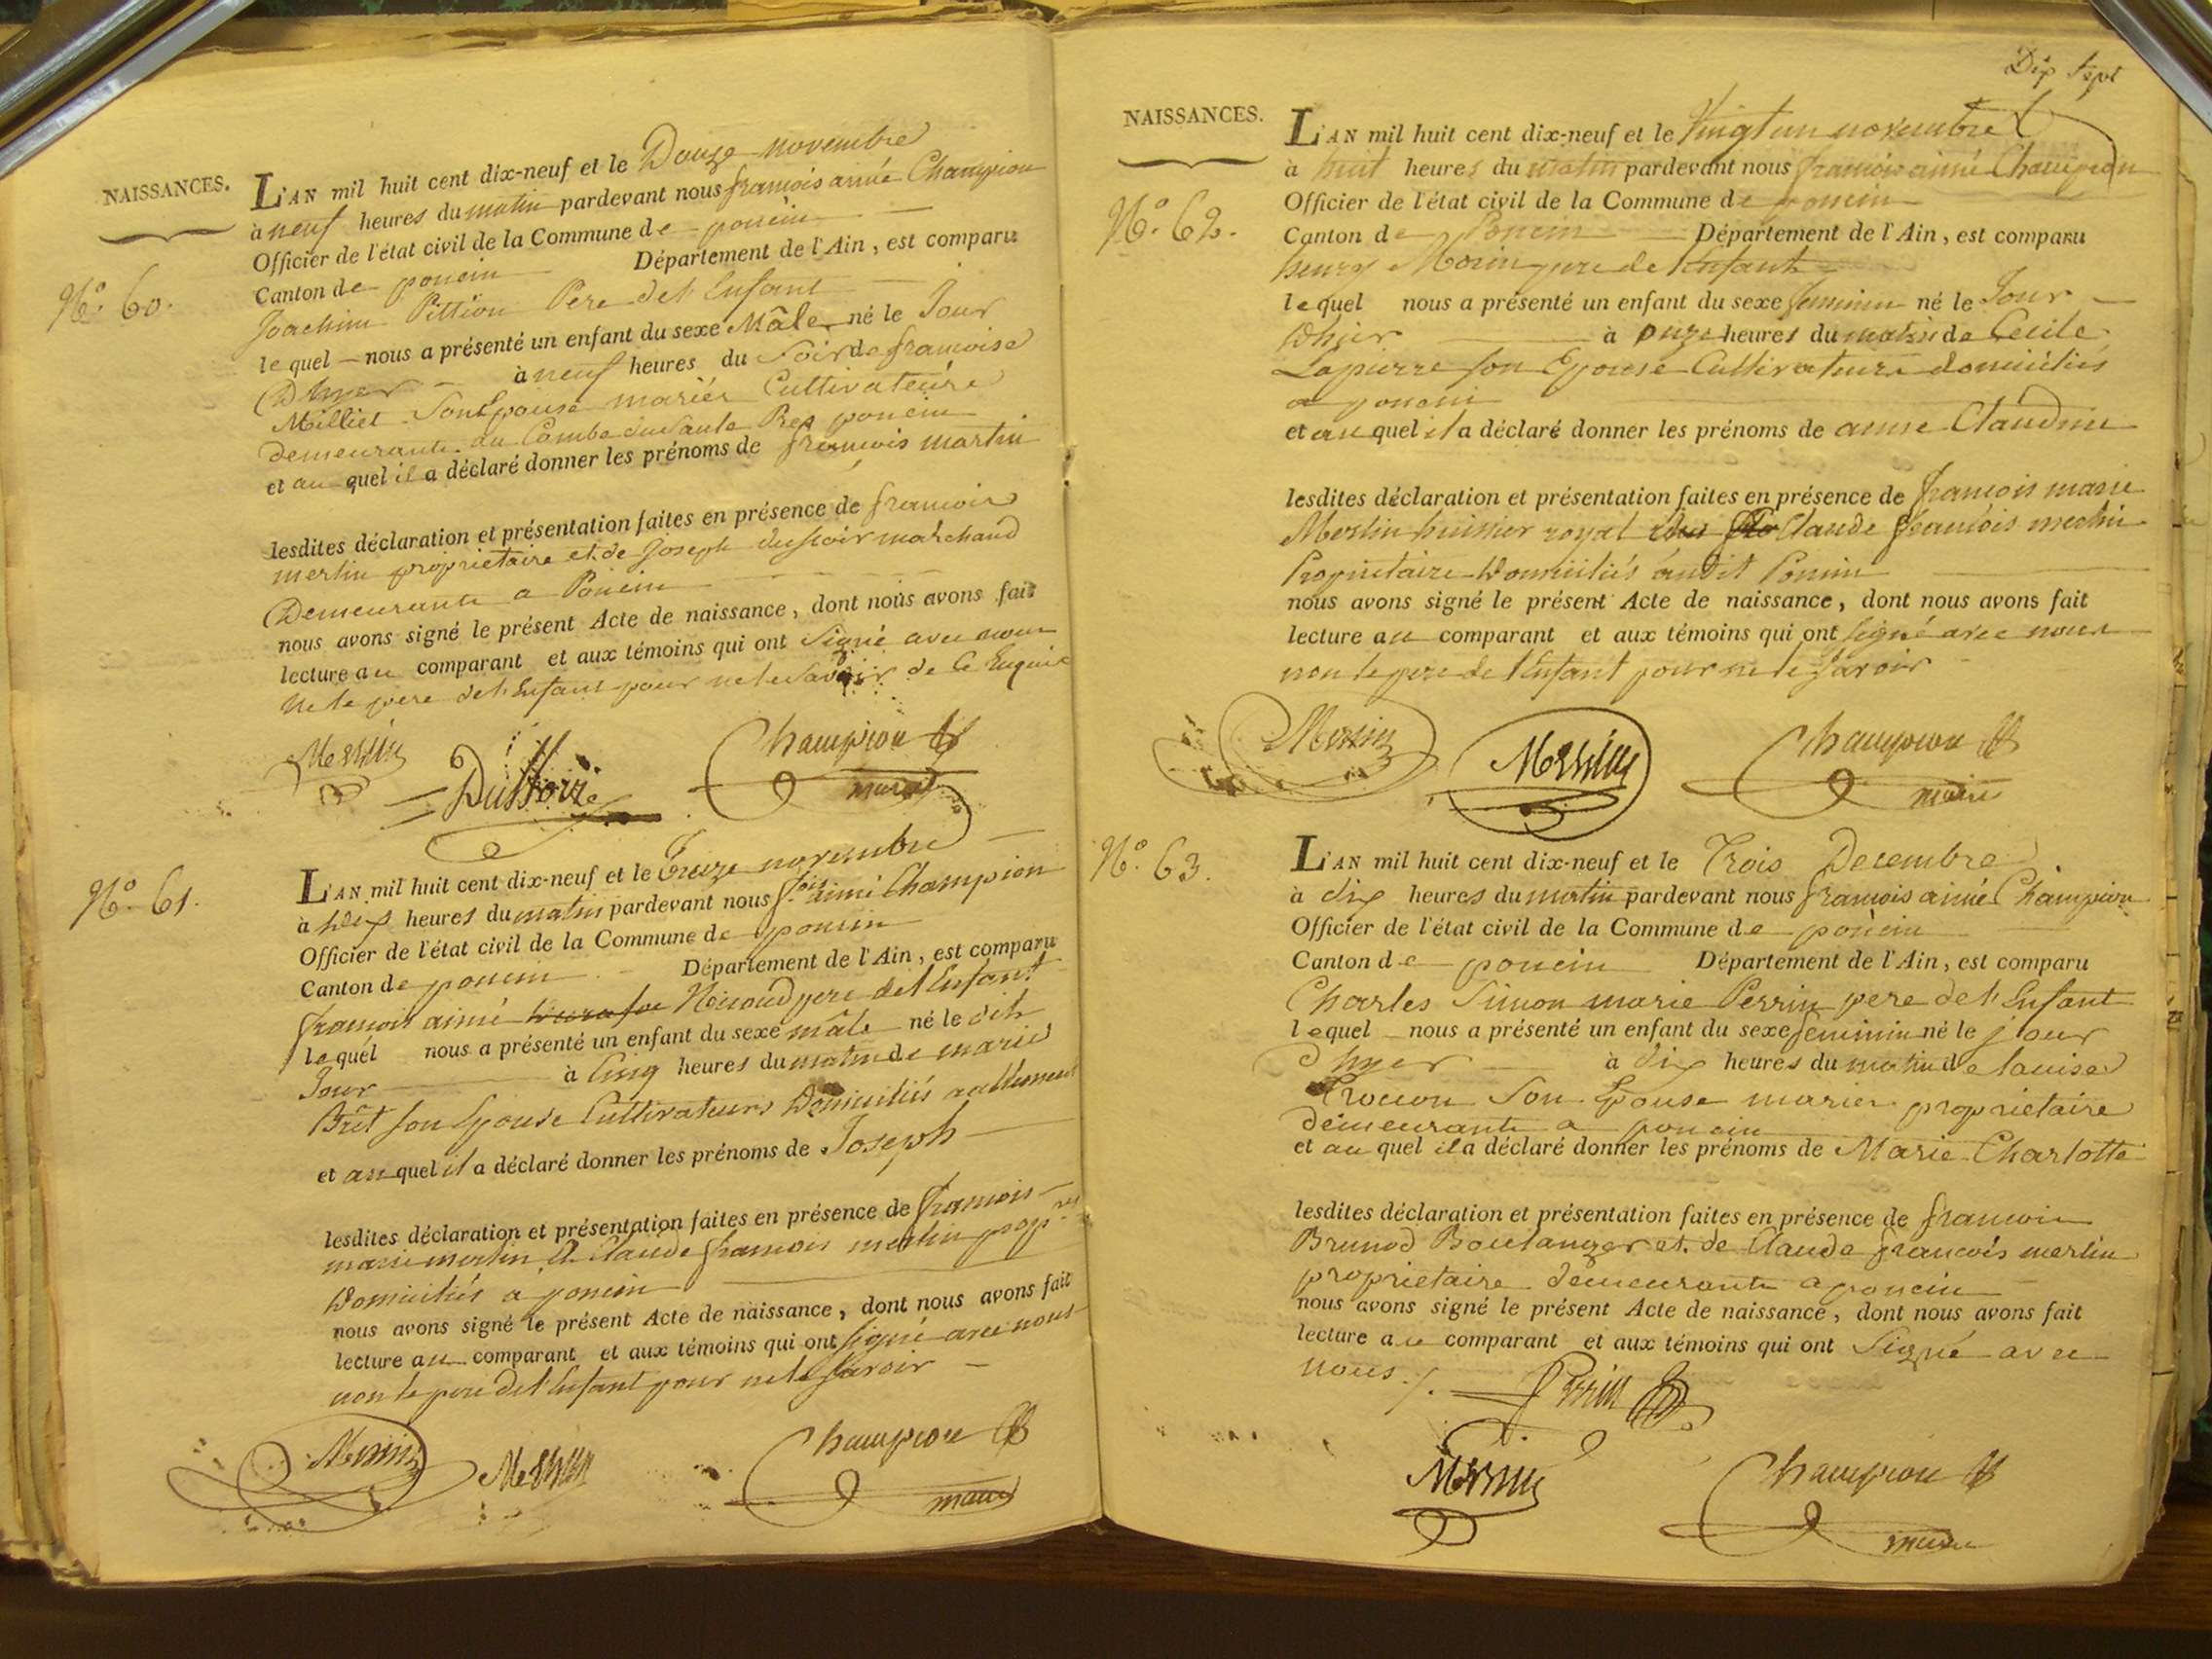 NAISSANCES.
N.º 60.
L'AN mil huit cent dix-neuf et le Douze novembre
à neuf heures du matin pardevant nous francois aimé Champion
Officier de l'état civil de la Commune de poncin
Canton de poncin Département de l'Ain, est comparu
Joachim Pittion Pere del'Enfant
lequel nous a présenté un enfant du sexe Mâle né le Jour
Dhyer à neuf heures du Soir de francoise
Milliet Son Epouse mariér Cultivateure
demeurante au Combe Pres poncin
et au quel il a déclaré donner les prénoms de francois martin
lesdites déclaration et présentation faites en présence de francois
merlin proprietaire et de Joseph marchand
Demeurante a Poncin
nous avons signé le présent Acte de naissance, dont nous avons fait
lecture au comparant et aux témoins qui ont Signé avec nous
Ne le pere del'Enfant pour ne le Savoir de Ce Enquit
Merlin
Champion
maire
N.º 61.
L'AN mil huit cent dix-neuf et le Treize novembre
à heures du matin pardevant nous f.ois aimé Champion
Officier de l'état civil de la Commune de poncin
Canton de poncin Département de l'Ain, est comparu
francois aimé pere del'Enfant
lequel nous a présenté un enfant du sexe mâle né le dit
Jour à Cinq heures du matin de marie
Brêt son Epouse Cultivateurs Domiciliés
et au quel il a déclaré donner les prénoms de Joseph
lesdites déclaration et présentation faites en présence de francois
marie merlin & Claude francois merlin prop.res
Domiciliés a poncin
nous avons signé le présent Acte de naissance, dont nous avons fait
lecture au comparant et aux témoins qui ont signé avec nous
non le pere del'Enfant pour ne le savoir
Merlin
Merlin
Champion
maire
Dix sept
NAISSANCES.
N.º 62.
L'AN mil huit cent dix-neuf et le Vingt un novembre
à huit heures du matin pardevant nous francois aimé Champion
Officier de l'état civil de la Commune de poncin
Canton de Poncin Département de l'Ain, est comparu
henry Morin pere de l'enfant
lequel nous a présenté un enfant du sexe feminin né le Jour
Dhier à onze heures du matin de Cecile
Lapierre son Epouse Cultivateurs domiciliés
a poncin
et au quel il a déclaré donner les prénoms de anne Claudine
lesdites déclaration et présentation faites en présence de francois marie
Merlin huissier royal Claude francois merlin
Proprietaire Domiciliés audit Poncin
nous avons signé le présent Acte de naissance, dont nous avons fait
lecture au comparant et aux témoins qui ont signé avec nous
non le pere de l'Enfant pour ne le savoir
Merlin
Merlin
Champion
maire
N.º 63.
L'AN mil huit cent dix-neuf et le Trois Decembre
à dix heures du matin pardevant nous francois aimé Champion
Officier de l'état civil de la Commune de poncin
Canton de poncin Département de l'Ain, est comparu
Charles Simon marie Perrin pere del'Enfant
lequel nous a présenté un enfant du sexe feminin né le jour
Dhyer à dix heures du matin de louise
Son Epouse mariér proprietaire
demeurante a poncin
et au quel il a déclaré donner les prénoms de Marie Charlotte
lesdites déclaration et présentation faites en présence de francois
Brunod Boulanger et de Claude francois merlin
proprietaire demeurante a poncin
nous avons signé le présent Acte de naissance, dont nous avons fait
lecture au comparant et aux témoins qui ont Signé avec
nous ./.
Perrin
Merlin
Champion
maire